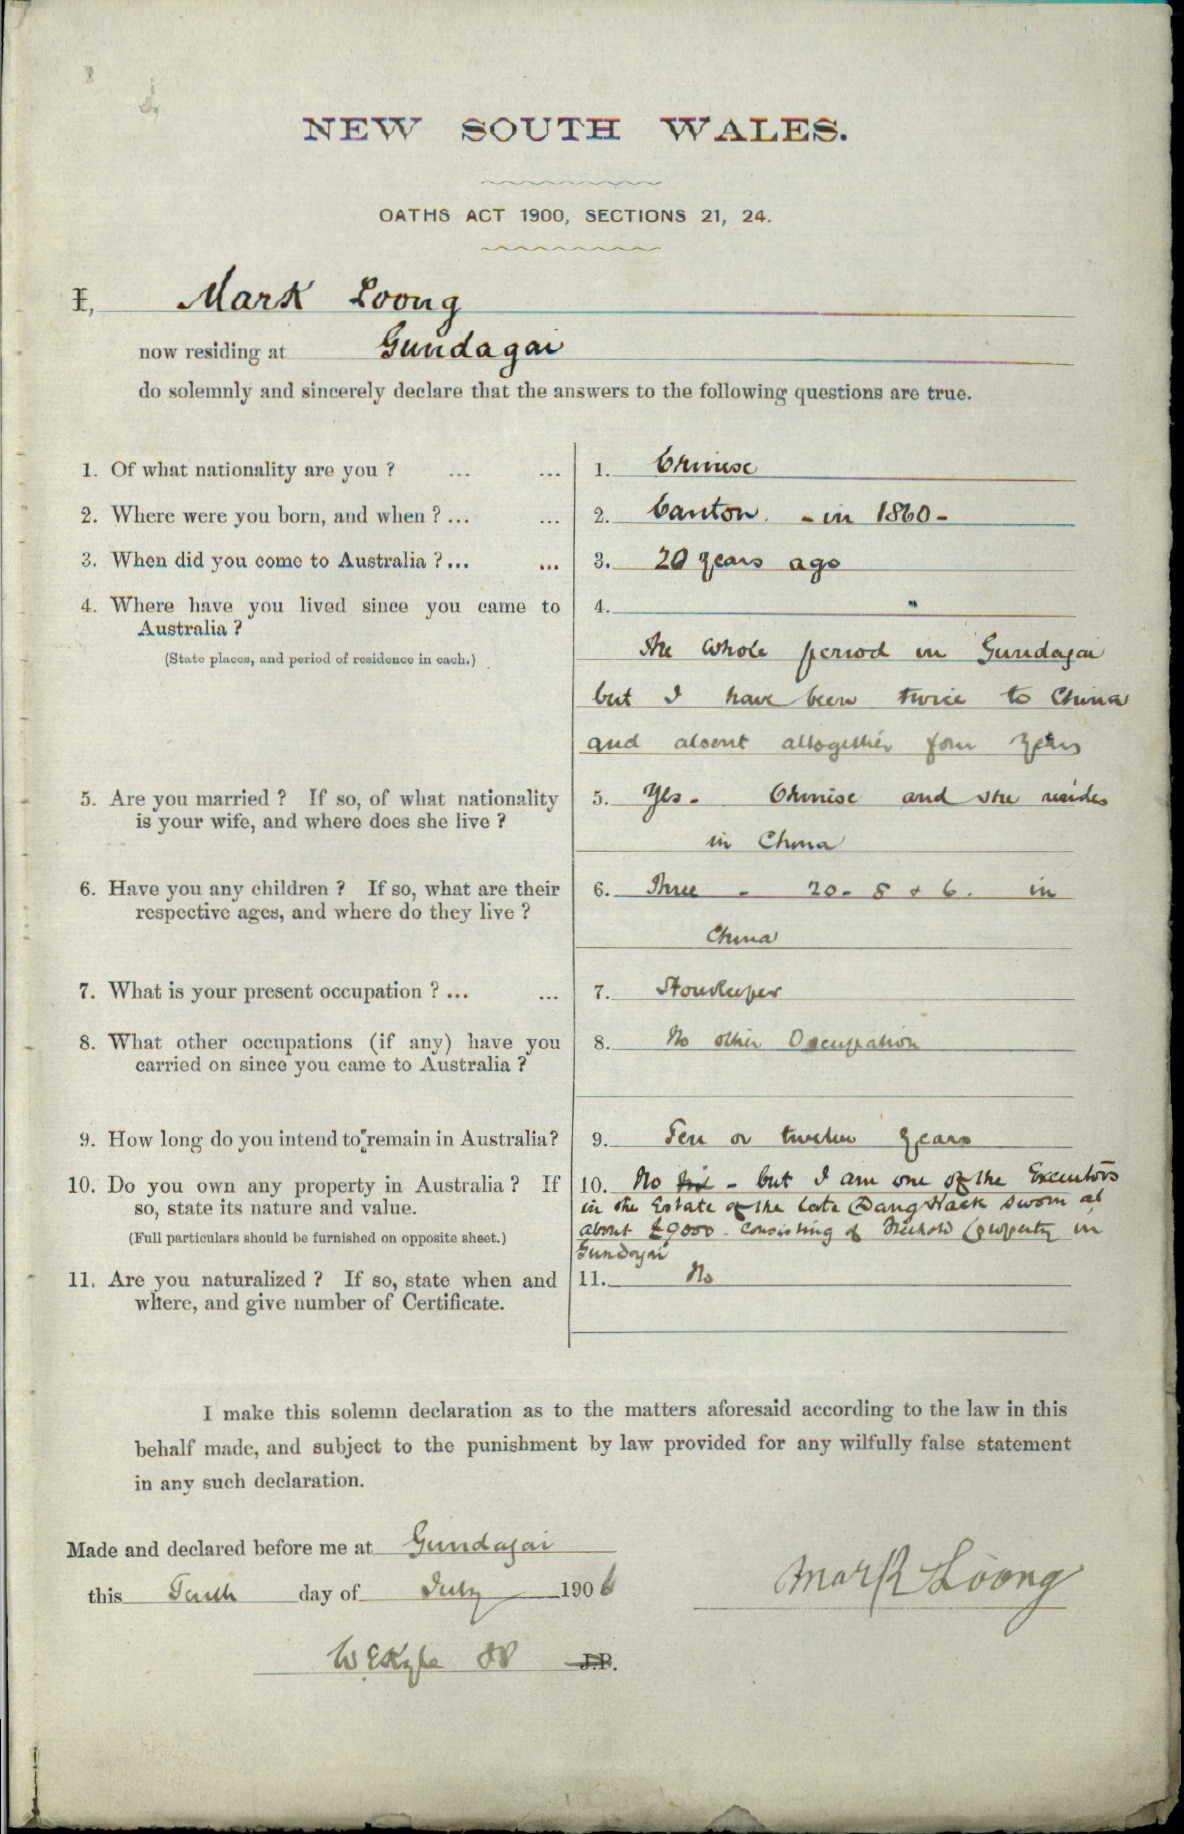 NEW SOUTH WALES.
OATHS ACT 1900, SECTIONS 21, 24.
I, Mark Loong
now residing at Gundagai
do solemnly and sincerely declare that the answers to the following questions are true.
1. Of what nationality are you ? ... ... 1. Chinese
2. Where were you born, and when ? ... ... 2. Canton. - in 1860 -
3. When did you come to Australia ? ... ... 3. 20 years ago
4. Where have you lived since you came to 4. "
Australia ?
(State places, and period of residence in each.) The whole period in Gundagai
but I have been twice to China
and absent altogether four years
5. Are you married ? If so, of what nationality 5. Yes - Chinese and she resides
is your wife, and where does she live ? in China
6. Have you any children ? If so, what are their 6. Three - 20 - 8 & 6. in
respective ages, and where do they live ? China
7. What is your present occupation ? ... ... 7. Storekeeper
8. What other occupations (if any) have you 8. No other Occupation
carried on since you came to Australia ?
9. How long do you intend to remain in Australia? 9. Ten or twelve years
10. Do you own any property in Australia ? If 10. No - but I am one of the Executors
so, state its nature and value. in the Estate of the late Dang Hack sworn at
(Full particulars should be furnished on opposite sheet.) about £9000. consisting of Freehold property in
Gundagai
11. Are you naturalized ? If so, state when and 11. No
where, and give number of Certificate.
I make this solemn declaration as to the matters aforesaid according to the law in this
behalf made, and subject to the punishment by law provided for any wilfully false statement
in any such declaration.
Made and declared before me at Gundagai
this Tenth day of July 1906
Mark Loong
J.P.